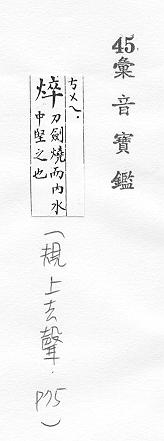 45.彙音寶鑑
ㄘㄨㄟˋ
焠 刀劍燒而內水
中堅之也
(規上去聲. P75)